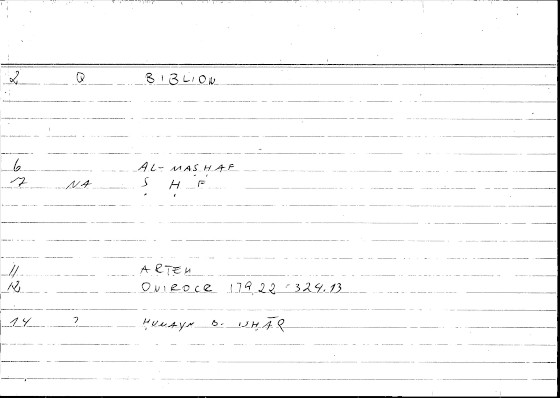 2 Q BIBLION
6 AL-MASHAF
7 NA Ṣ Ḥ F
11 ARTEM
12 ONIROCR 179.22 324.13
14 ? ḤUNAYN B. ISḤĀQ